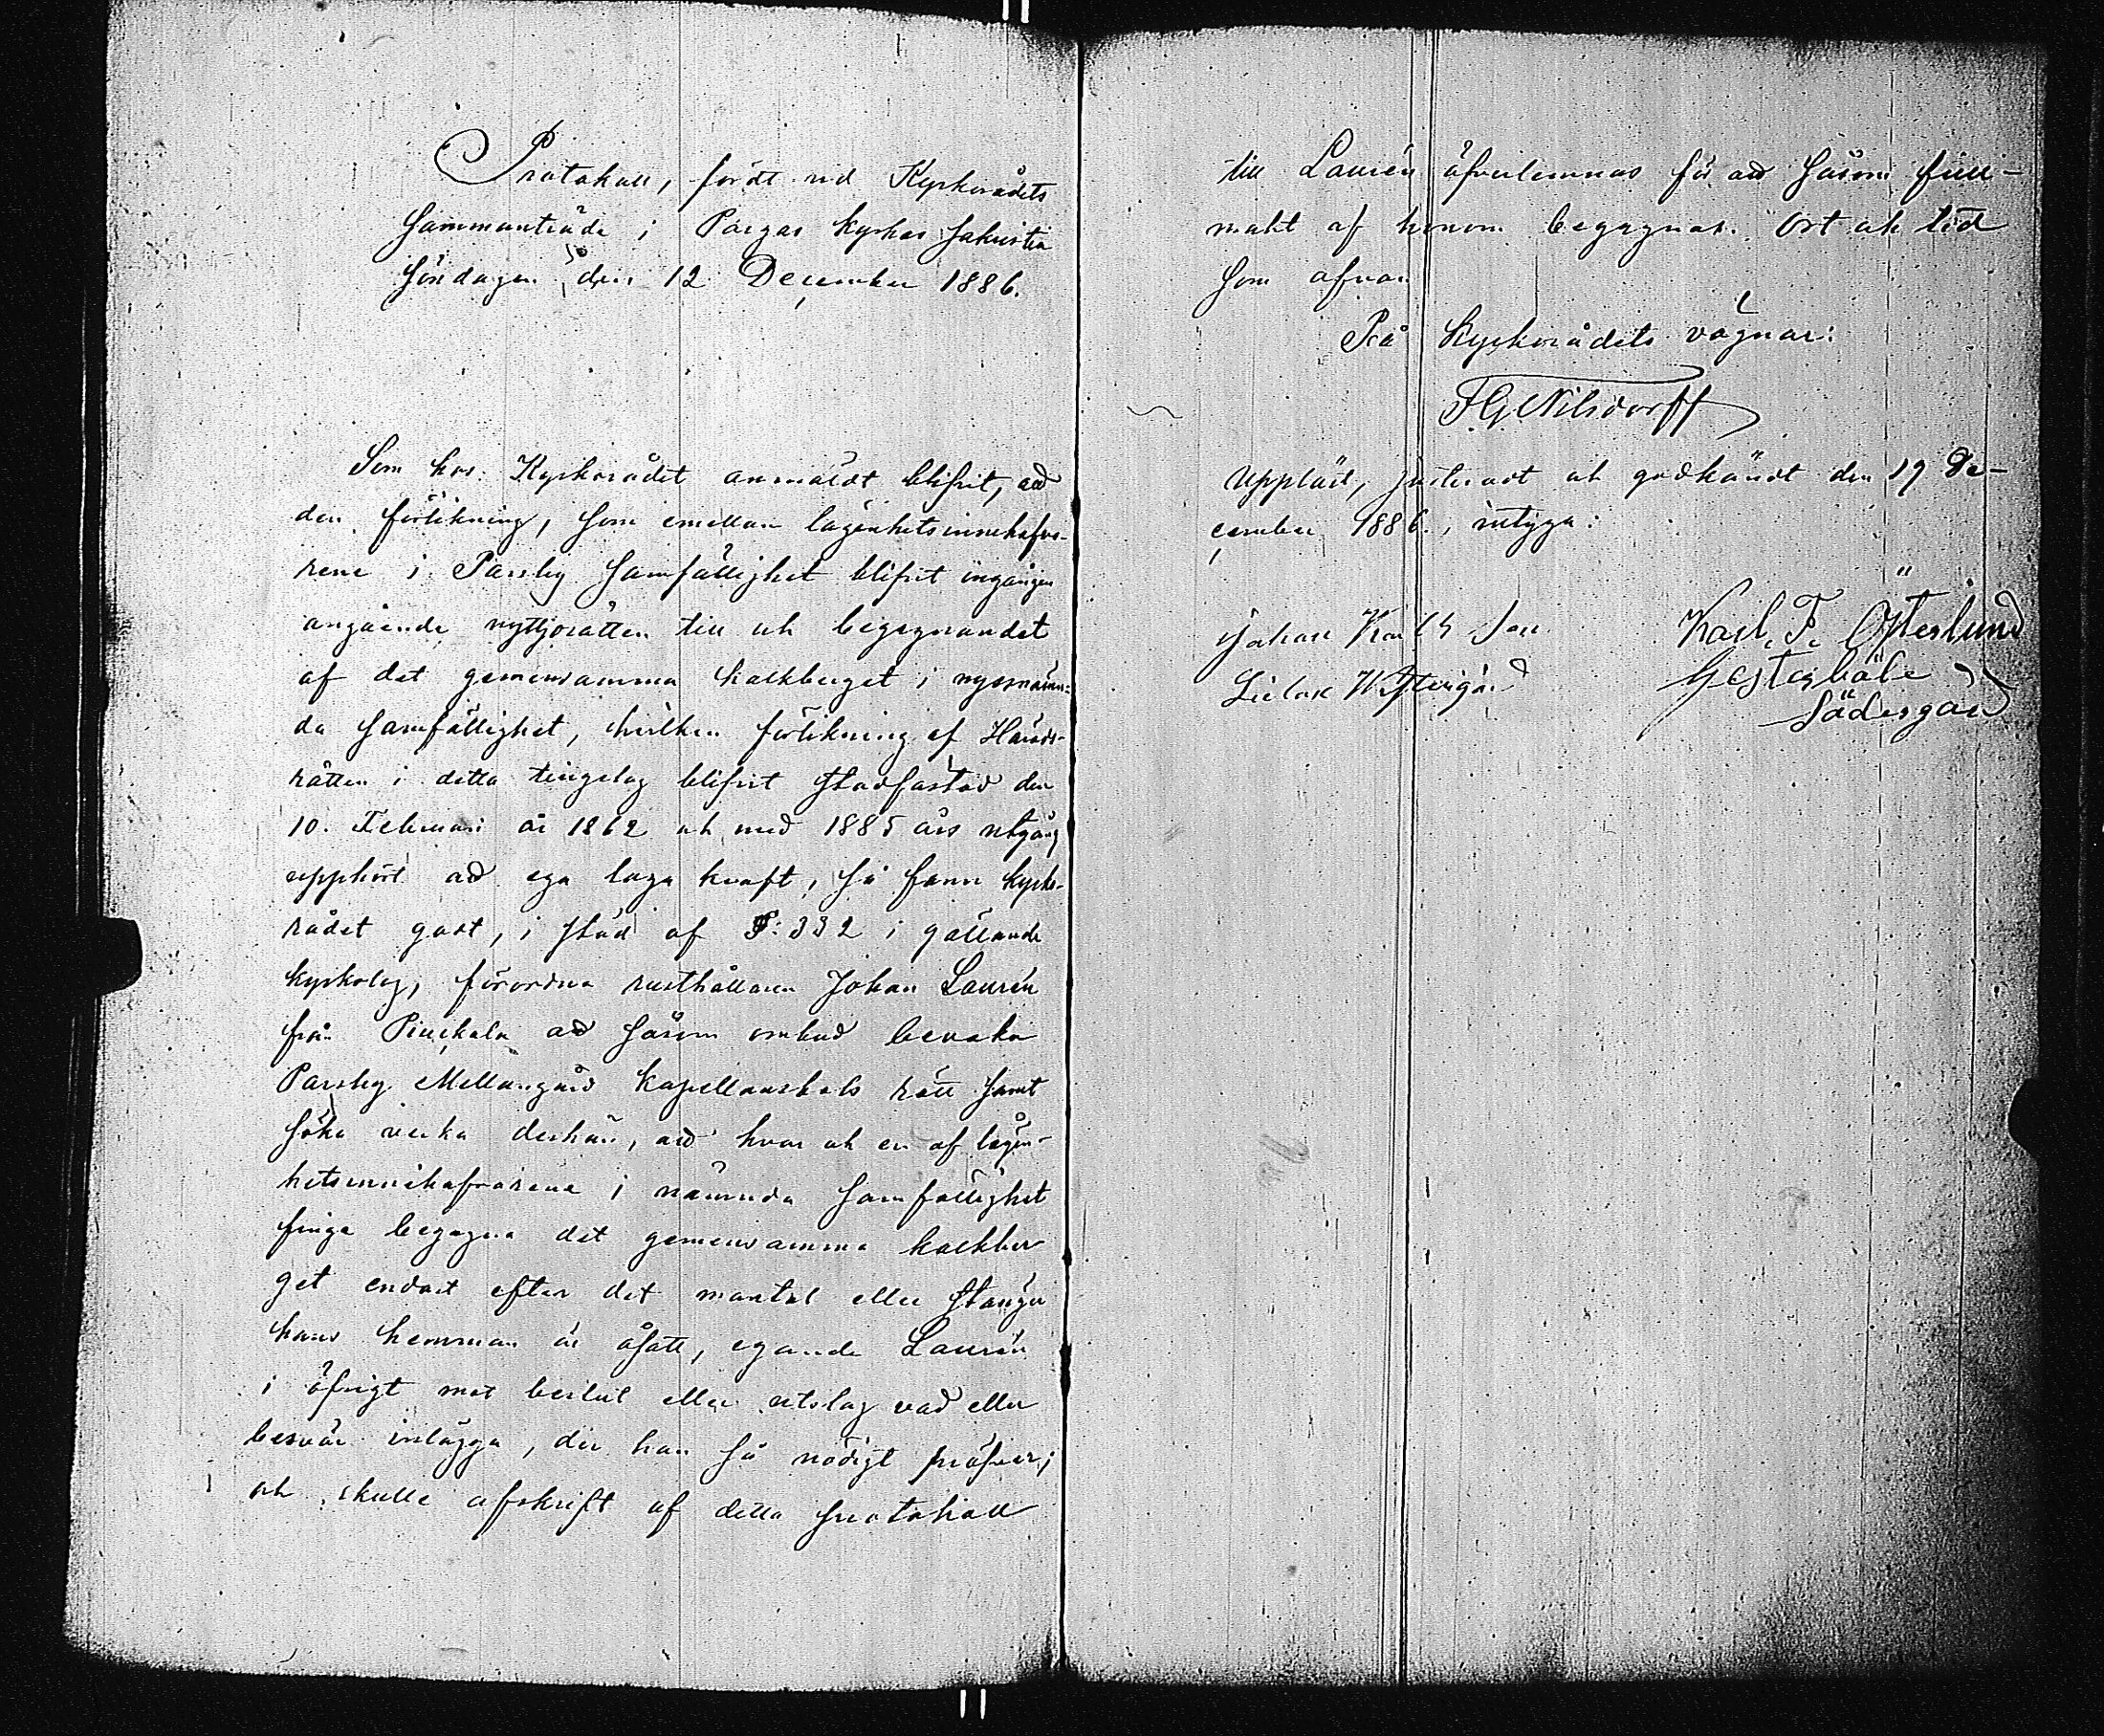 Protokoll, fördt vid Kyrkorådets
sammanträde i Pargas kyrkas sakristia
söndagen den 12 December 1886.
Som hos Kyrkorådet anmäldt blifvit, att
den förlikning, som emellan lägenhetsinnehafva-
rene i Parsby samfällighet blifvit ingången
angående nyttjorätten till och begagnandet
af det gemensamma kalkberget i nyssnämn-
da samfällighet, hvilken förlikning af Härads-
rätten i detta tingslag blifvit stadfästad den
10. Februari år 1862 och med 1885 års utgång
upphört att ega laga kraft, så fann kyrko-
rådet godt, i stöd af §: 332 i gällande
kyrkolag, förordna rusthållaren Johan Laurén
från Piuckala att såsom ombud bevaka
Parsby Mellangård Kapellansbols rätt samt
söka verka derhän, att hvar och en af lägen-
hetsinnehafvarena i nämnda samfällighet
finge begagna det gemensamma kalkber
get endast efter det mantal eller stänger
hans hemman är åsatt, egande Laurén
i öfrigt mot beslut eller utslag vad eller
besvär inlägga, der han så nödigt pröfvar;
och skulle afskrift af detta protokoll
till Laurén öfverlemnas för att såsom full-
makt af honom begagnas. Ort och tid
som ofvan
På Kyrkorådets vägnar:
F G Nilsdorff
Uppläst, justeradt och godkändt den 19 De-
cember 1886., intyga:
Johan Karls Son Karl F. Österlund
Westergård Gesterböle
Södergård